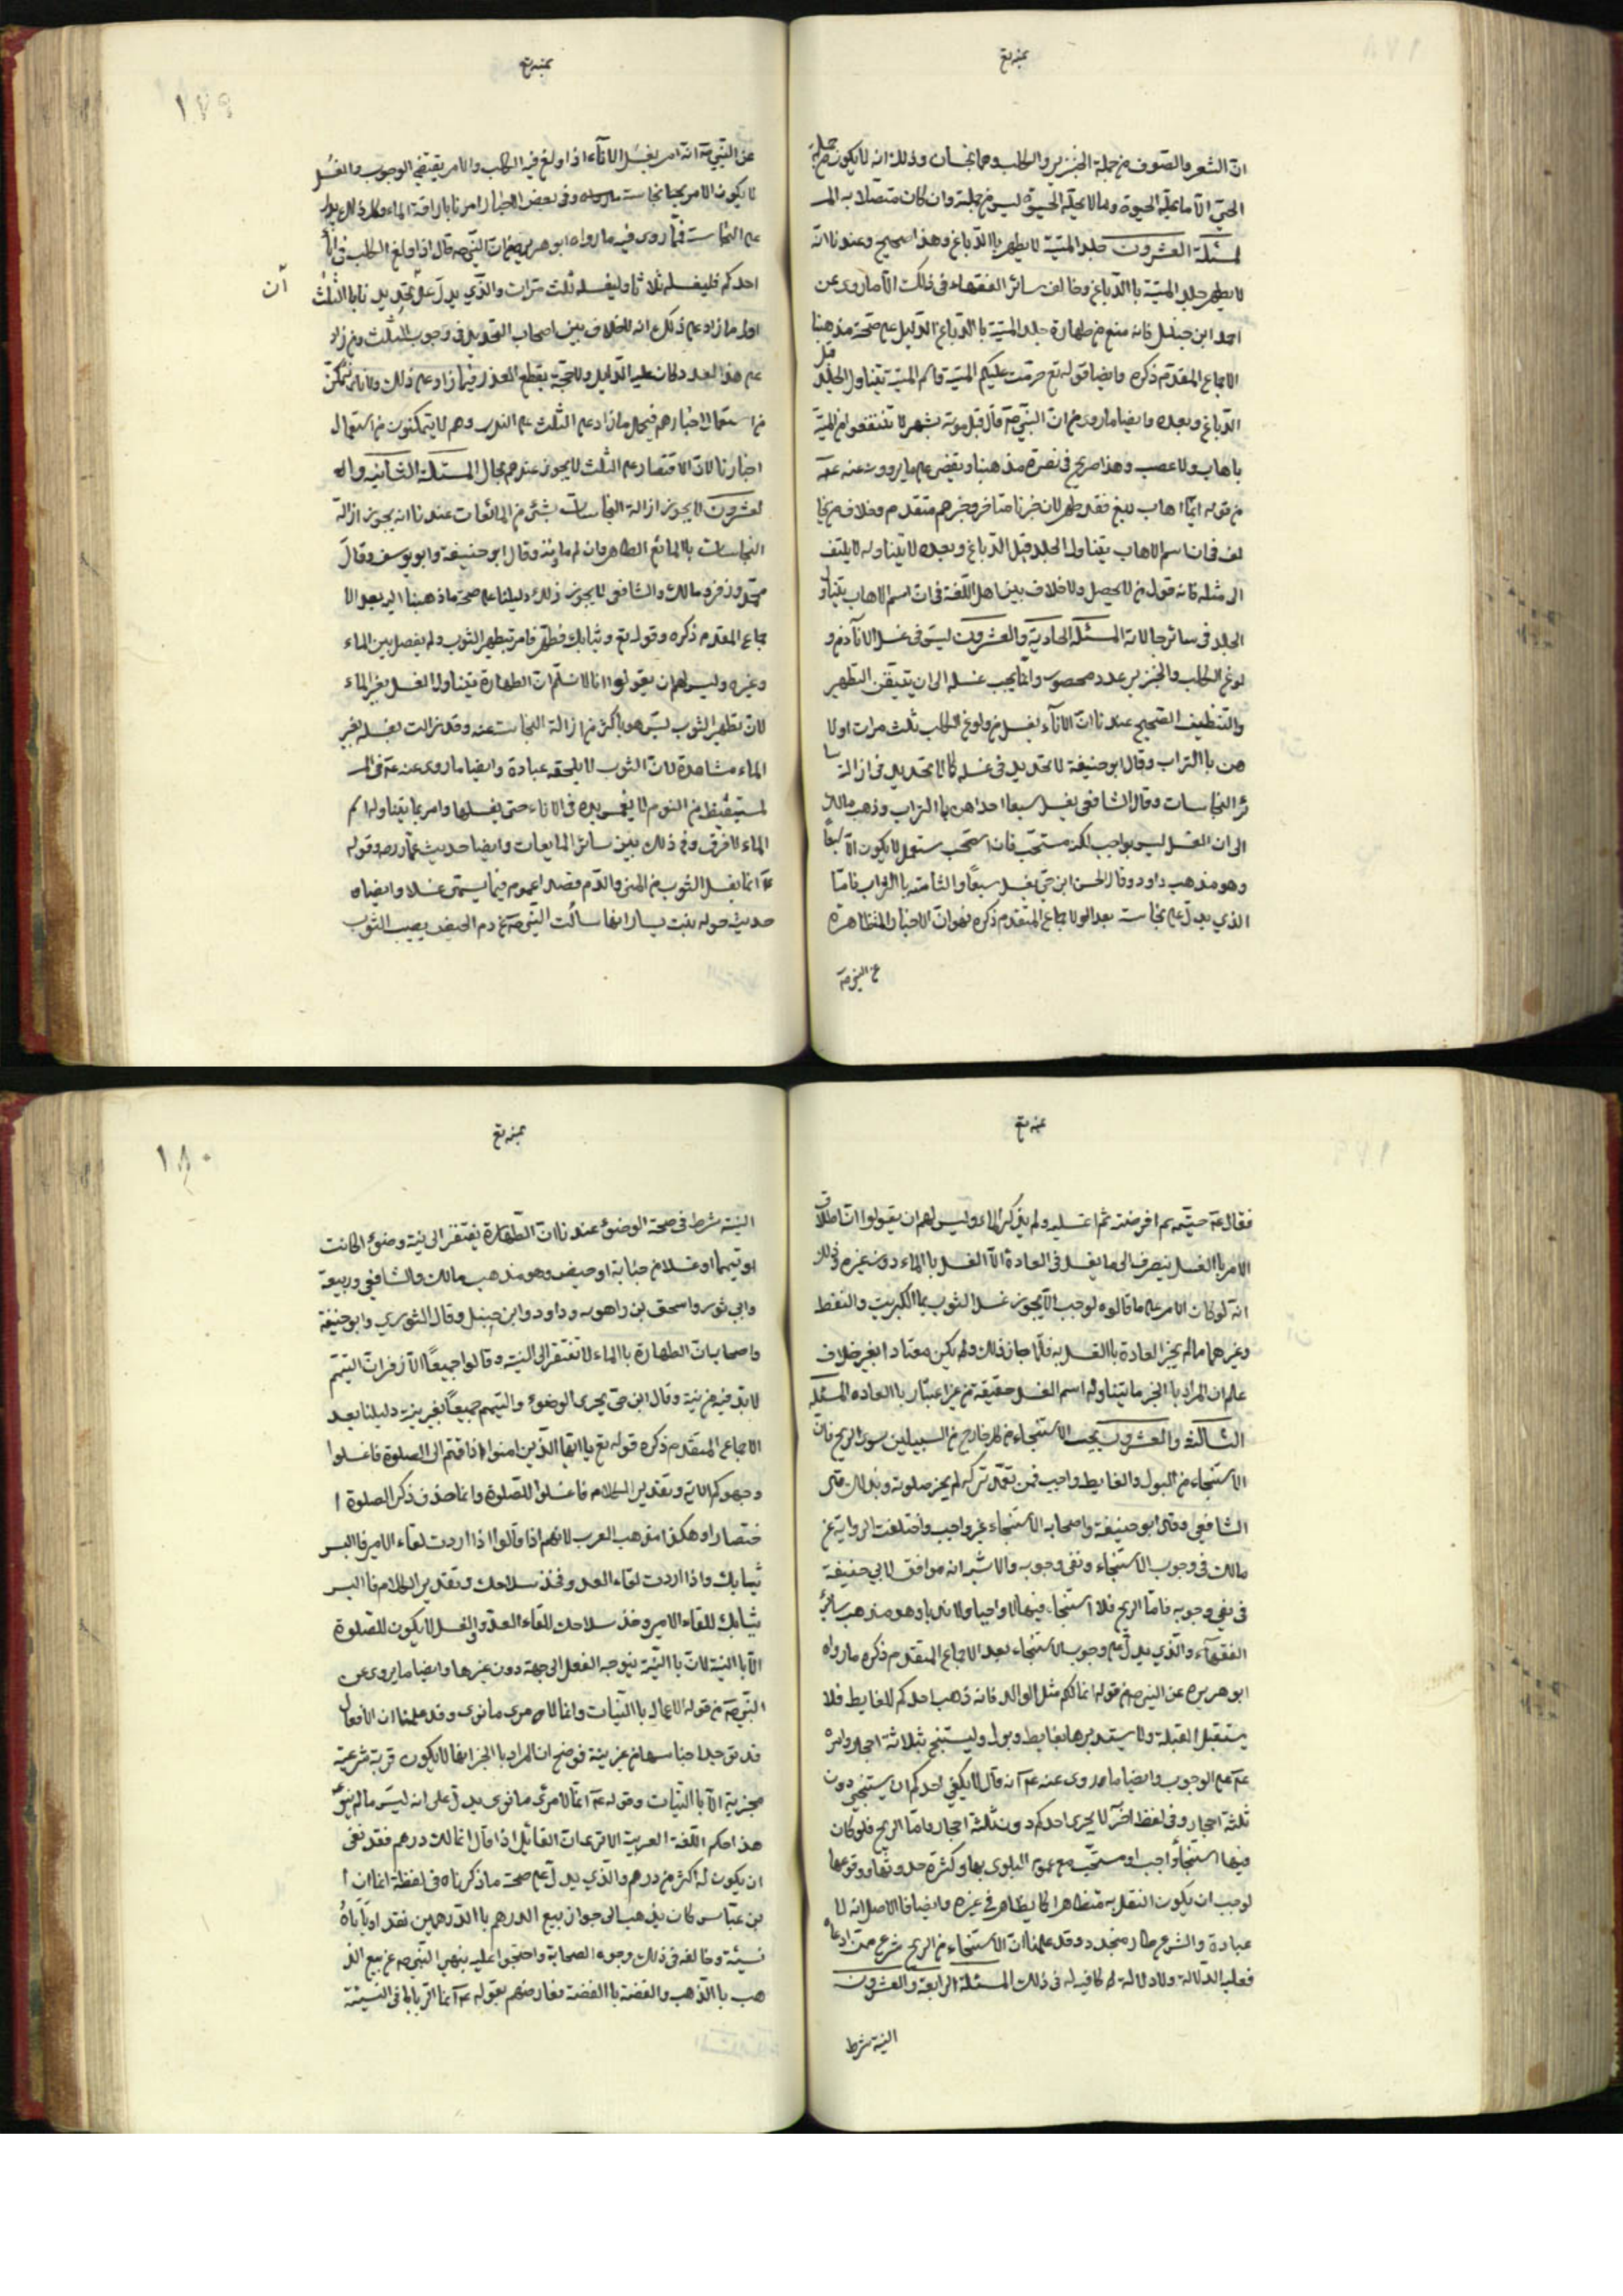 انّ الشعر والصوف من جملة الخنزير والكلب وهما نجسان وذلك انه لا يكون من جملة
الحيّ الّا ما تحلّه الحيوة وما لا تحلّه الحيوة ليس من جملته وان كان متصلا به الم
لمسئلة العشرون جلد الميتة لا يطهر باالدّباغ وهذا صحيح وعندنا انّه
لا يطهر جلد الميّتة باالدّباغ وخالف سائر الفقهاء في ذلك الّا ما روى عن
احمد ابن حنبل فانه منع من طهارة جلد الميّتة باالدّباغ الدّليل على صحّة مذهبنا
الاجماع المقدّم ذكره وايضا قوله تع حرّمت عليكم الميّتة واسم الميّتة يتناول الجلد قبل
الدّباغ وبعده وايضا ما روى من انّ النّبيّ صه قال قبل موته بشهر لا تنتفعوا من الميّتة
باهاب ولا عصب وهذا صريح في نصرة مذهبنا ويقضى على ما يروونه عنه عه
من قوله ايّما اهاب دبغ فقد طهر لان خبرنا متاخر وخبرهم متقدم وخلاف من يخا
لف في انّ اسم الاهاب يتناول الجلد قبل الدّباغ وبعده لا يتناوله لا يلتف
الى مثله فانه قول من لا يحصل ولا خلاف بين اهل اللّغة في انّ اسم الاهاب يتناول
الجلد في سائر حالاته المسئلة الحادية والعشرون ليس في غسل الاناء من و
لوغ الكلب والخنزير عدد محصوص وانّما يجب غسله الى ان يتيقّن التطهير
والتنظيف الصّحيح عندنا انّ الاناء يغسل من ولوغ الكلب ثلث مرات اولا
هن باالتراب وقال ابو حنيفة لا تحديد في غسله كما لا تحديد في ازالة سا
ئر النجاسات وقال الشافعي يغسل سبعا احداهن باالتراب وذهب مالك
الى ان الغسل ليس بواجب لكنه مستحبّ فان استحبّ مستعمل لا يكون الّا سبعاً
وهو مذهب داود وقال الحسن ابن حيّ يغسل سبعاً والثامنة باالتراب فامّا
الذي يدلّ على نجاسته بعد الاجماع المتقدم ذكره فهو انّ الاخبار المتظاهرة
عن النبي صه
عن النّبيّ صه انّه امر بغسل الاناء اذا ولغ فيه الكلب والامر يقتضي الوجوب والغسل
لا يكون الامر نجاسته وفي بعض الاخبار امرنا باراقة الماء وكلّ ذلك يدل
على النجاسة فممّا روى فيه ما رواه ابو هريره من انّ النّبيّ صه قال اذا ولغ الكلب في انا
احدكم فليغسله ثلاثا وليغسله ثلث مرّات والّذي يدلّ على تحديدنا باالثلث
اوله ما زاد على ذلك انه لا خلاف بين اصحاب التحديد في وجوب الثلث ومن زاد
على هذا العدد كان عليه الدّليل ولا حجّة يقطع العذر فيما زاد على ذلك ولانّا نتمكّن
من استعمال اخبارهم فيحمل ما زاد على الثّلث على الندب وهم لا يتمكنون من استعمال
اخبارنا لانّ الاقتصار على الثلث لا يجوز عندهم بحال المسئلة الثانيه وال
لعشرون لا يجوز ازالة النجاسات بشئ من المائعات عندنا انه يجوز ازالة
النجاسات باالمائع الطاهر وان لم ماء وقال ابو حنيفة وابو يوسف وقال
محمّد وزفر ومالك والشافعي لا يجوز ذلك دليلنا على صحة ما ذهبنا اليه بعد الا
جماع المقدم ذكره وقوله تع وثيابك فطهّر فامر بتطهير الثوب ولم يفصل بين الماء
وغيره وليس لهم ان يقولوا انا لا نسلّم انّ الطهارة يتناول الغسل بغير الماء
لانّ تطهير الثوب ليس هو باكثر من ازالة النجاسة عنه وقد زالت بغسله بغير
الماء مشاهدة لانّ الثوب لا يلحقه عبادة وايضا ما روى عنه عه في ال
لمستيقظ من النوم لا يغمس يده في الاناء حتى يغسلها وامر بما يتناول اسم
الماء لا فرق في ذلك بين سائر المايعات وايضا حديث عمّار وقوله
عه انما يغسل الثوب من المنى والدّم فصار اعموم فيما يسمّى غسلا وايضاه
حديث خوله بنت يسار انها سالت النّبيّ صه عن دم الحيض يصيب الثوب
١٧٩
فقال عه حتّيه ثم اقرصيه ثم اغسليه ولم يذكر الماء وليس لهم ان يقولوا انّ اطلاق
الامر باالغسل ينصرف الى ما يغسل في العادة الّا الغسل باالماء دون غيره وذلك
انّه لو كان الامر على ما قالوه لوجب الّا يجوز غسل الثوب بماء الكبريت والنفط
وغيرهما ممّا لم يجر العادة باالغسل به فلمّا جاز ذلك ولم يكن معتادا بغير خلاف
علم ان المراد باالخبر ما يتناوله اسم الغسل حقيقة من غير اعتبار باالعاده المسئله
الثالثة والعشرون يجب الاستنجاء من كل خارج من السبيلين سوى الريح فان
الاستنجاء من البول والغايط واجب فمن تعمّد تركه لم يجز صلوته وبذلك قال
الشافعي وقال ابو حنيفة واصحابه الاستنجاء غير واجب واختلفت الرواية عن
مالك في وجوب الاستنجاء ونفى وجوبه والاشبه انه موافق لابي حنيفة
في نفي وجوبه فامّا الريح فلا استنجاء فيها لا واجبا ولا ندبا وهو مذهب سائر
الفقهاء والّذي يدلّ على وجوب الاستنجاء بعد الاجماع المتقدم ذكره ما رواه
ابو هريره عن النبي صه من قوله انما لكم مثل الوالد فانه ذهب احدكم للغايط فلا
يستقبل القبلة ولا يستدبرها بغايط وبول وليستنج بثلاثة احجار وامره
عه على الوجوب وايضا ما روى عنه عه انه قال لا يكفي احدكم ان يستنجي دون
ثلثة احجار وفي لفظ اخر لا يجزى احدكم دون ثلثة احجار وامّا الريح فلو كان
فيها استنجاء واجب او مستحبّ مع عموم البلوى بها وكثرة حدوثها ووقوعها
لوجب ان يكون النقل به متظاهرا كما يظاهر في غيره وايضا فالاصل انه لا
عبادة والشرع طار متجدد وقد علمنا انّ الاستنجاء من الريح شرع فمن ادعاه
فعليه الدّلالة ولا دلالة له كافيه له في ذلك المسئلة الرابعة والعشرون
النية شرط
النيّة شرط في صحة الوضوء عندنا انّ الطّهارة يفتقر الى نية وضوء كانت
او تيمّما او غسلا من جنابة او حيض وهو مذهب مالك والشافعي وربيعة
وابي ثور واسحق بن راهويه وداود وابن حنبل وقال الثوري وابو حنيفة
واصحابه انّ الطهارة باالماء لا تفتقر الى النيّة وقالوا جميعًا الّا زفر انّ التيمّم
لا بدّ فيه من نيّة وقال ابن حيّ يجزى الوضوء والتيمم جميعًا بغير نيّة دليلنا بعد
الاجماع المتقدّم ذكره قوله تع يا ايها الّذين امنوا اذا قمتم الى الصلوة فاغسلوا
وجوهكم الاية وتقدير الكلام فاغسلوا للصّلوة وانما حذف ذكر الصلوة ا
ختصارا وهكذا مذهب العرب لانهم اذا قالوا اذا اردت لقاء الامير فاالبس
ثيابك واذا اردت لقاء العدو فخذ سلاحك وتقدير الكلام فاالبس
ثيابك للقاء الامير وخذ سلاحك للقاء العدوّ والغسل لا يكون للصّلوة
الّا باالنية لانّ باالنيّة يتوجه الفعل الى جهة دون غيرها وايضا ما يروى عن
النّبيّ صه من قوله الاعمال باالنّيات وانما لامرئ ما نوى وقد علمنا ان الافعال
قد توجد اجناسها من غير نيّة فوضح ان المراد باالخبر انها لا يكون قربة شرعيّة
مجزية الّا باالنّيات وقوله عه انّما لامرئ ما نوى يدلّ على انه ليس ما لم ينو
هذا حكم اللّغة العربية الا ترى انّ القائل اذا قال انما لك درهم فقد نفى
ان يكون له اكثر من درهم والّذي يدلّ على صحة ما ذكرناه في لفظة انما ان ا
بن عبّاس كان يذهب الى جواز بيع الدرهم باالدّرهمين نقدا وياباهُ
نسيئة وخالفه في ذلك وجوه الصحابة واحتجّوا عليه بنهى النّبيّ صه عن بيع الذ
هب باالذّهب والفضة باالفضة فعارضهم بقوله عه انما الرّبا في النّسيئة
١٨٠